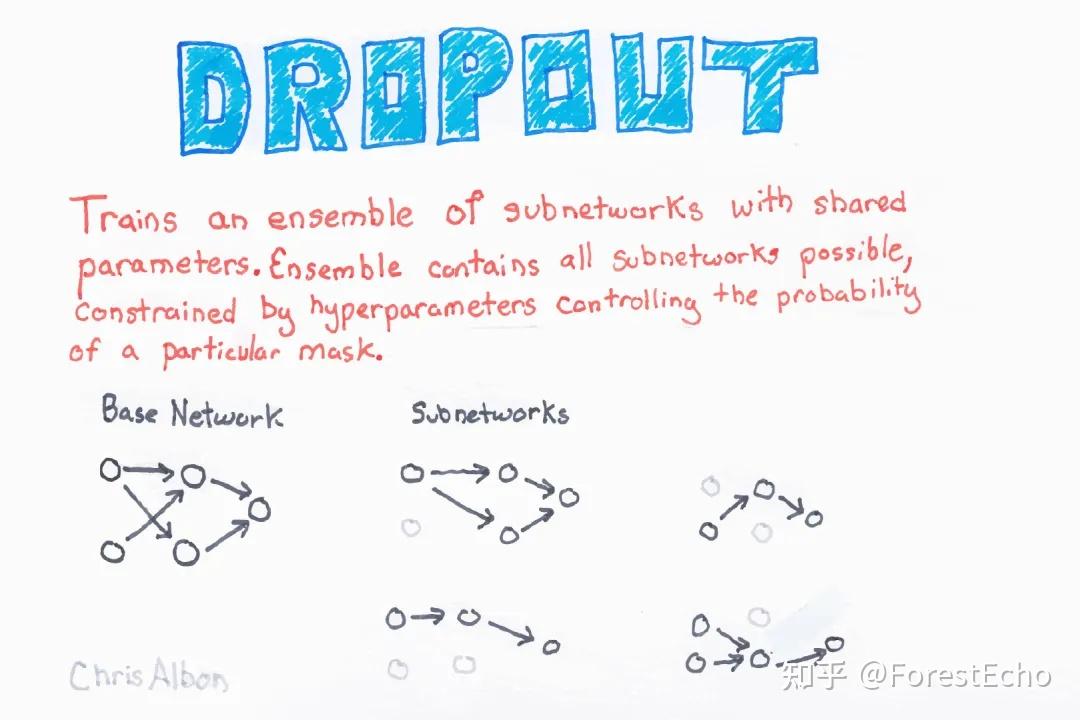 DROPOUT
Trains an ensemble of subnetworks with shared
parameters. Ensemble contains all subnetworks possible,
constrained by hyperparameters controlling the probability
of a particular mask.
Base Network
Subnetworks
Chris Albon
知乎 @ForestEcho